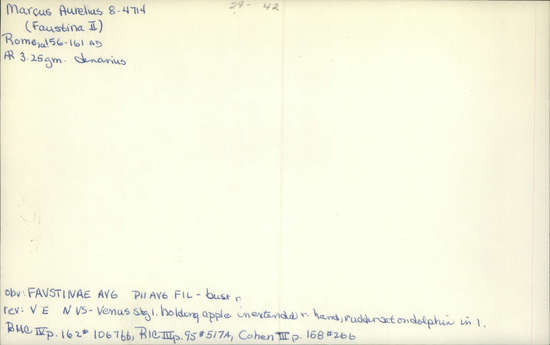 Marcus Aurelius 8-4714
29-42
(Faustina II)
Rome, 156-161 AD
AR 3.25gm. denarius
obv: FAVSTINAE AVG PII AVG FIL - bust r
rev: V E N VS - Venus stg l. holding apple in extended r. hand, rudder set on dolphin in l.
BMC IV p. 162 # 1067bb, RIC III p. 95 # 517A, Cohen III p. 158 # 266